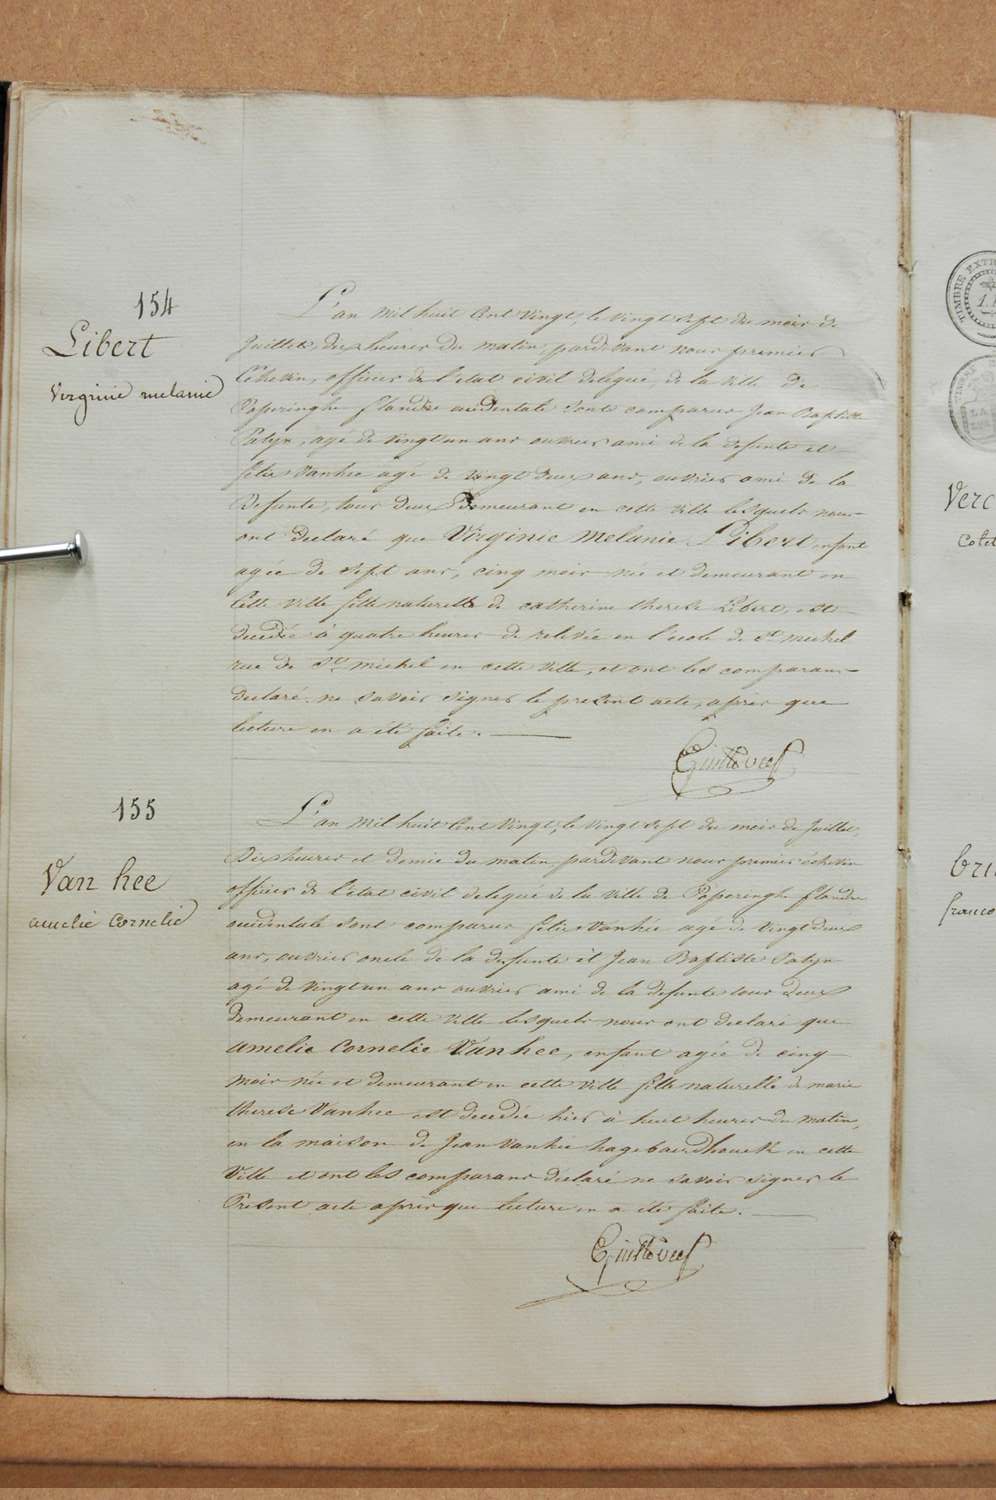 154
Libert
Virginie melanie
L'an mil huit Cent vingt, le vingt sept du mois de
Juillet, dix heures du matin, pardevant nous premier
Echevin, officier de l'état civil delegué, de la ville de
Poperinghe flandre occidentale sont comparus Jean Baptiste
Patyn, agé de vingt un ans ouvrier ami de la defunte et
felix Vanhee agé de vingt deux ans, ouvrier ami de la
Defunte, tous deux Demeurant en cette ville lesquels nous
ont declaré que Virginie Melanie Libert, enfant
agée de sept ans, cinq mois née et demeurant en
Cette ville fille naturelle de catherine therese Libert, est
decedée à quatre heures de relevée en l'école de St michel
rue de St michel en cette ville, et ont les comparans
declaré ne savoir signer le present acte, après que
lecture en a été faite.
155
Van hee
amelie Cornelie
L'an mil huit Cent vingt, le vingt sept du mois de Juillet,
Dix heures et demie du matin pardevant nous premier échevin
officier de l'état civil delegué de la ville de Poperinghe flandre
occidentale sont comparus felix Vanhée agé de vingt deux
ans, ouvrier oncle de la defunte et Jean Baptiste Patyn
agé de vingt un ans ouvrier ami de la defunte tous deux
demeurant en cette ville lesquels nous ont declaré que
amelie Cornelie Vanhee, enfant agée de cinq
mois née et demeurant en cette ville fille naturelle de marie
therese Vanhee est decedée hier à huit heures du matin,
en la maison de Jean Vanhée en cette
Ville et ont les comparans déclaré ne savoir signer le
Present acte après que lecture en a été faite.
TIMBRE EXTR
Verc
Colet
bru
franco